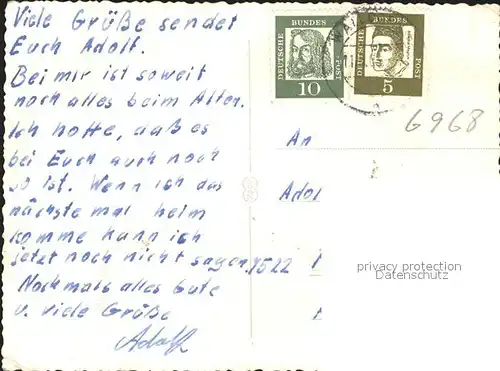 Viele Grüße sendet
Euch Adolf.
Bei mir ist soweit
noch alles beim Alten.
Ich hoffe, daß es
bei Euch auch noch
so ist. Wenn ich das
nächste mal heim
komme kann ich
jetzt noch nicht sagen.
Nochmals alles Gute
u. viele Grüße
Adolf
DEUTSCHE BUNDES POST
10
DEUTSCHE BUNDES POST
5
6968
An
Adol
7522
privacy protection
Datenschutz